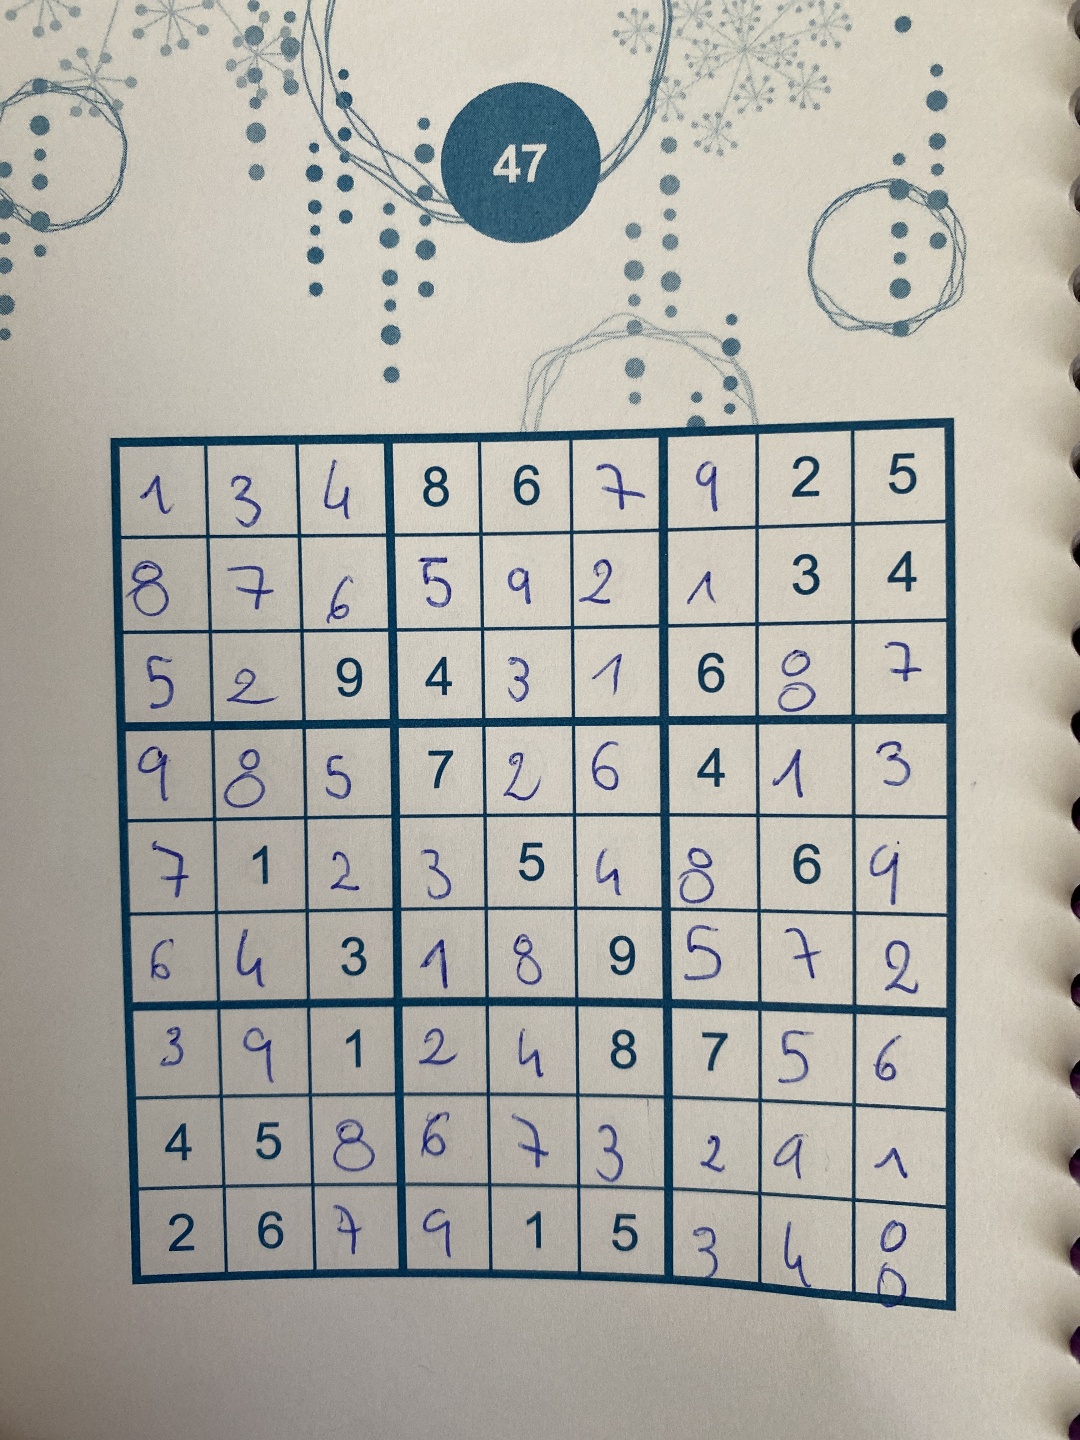 47
1 3 4 8 6 7 9 2 5
8 7 6 5 9 2 1 3 4
5 2 9 4 3 1 6 8 7
9 8 5 7 2 6 4 1 3
7 1 2 3 5 4 8 6 9
6 4 3 1 8 9 5 7 2
3 9 1 2 4 8 7 5 6
4 5 8 6 7 3 2 9 1
2 6 7 9 1 5 3 4 8